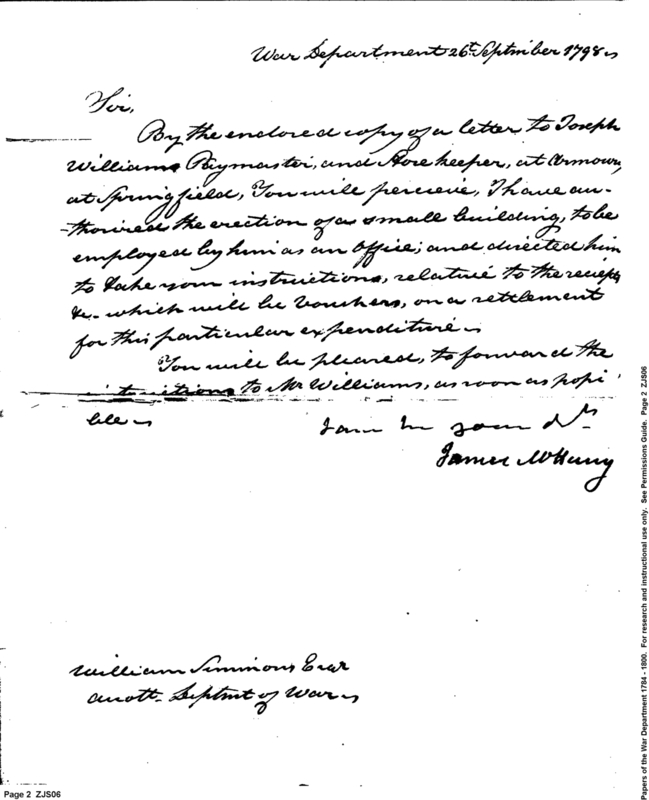 War Department 26th September 1798
Sir,
By the enclosed copy of a letter to Joseph
Williams Paymaster, and Store keeper, at Armoury,
at Springfield, You will percieve, I have au-
-thorised the erection of a small building, to be
employed by him as an office; and directed him
to take your instructions, relative to the reciepts
&c. which will be Vouchers, on a settlement
for this particular expenditure
You will be pleased, to forward the
instructions to Mr Williams, as soon as possi
ble
I am Sir your
James McHenry
William Simmons Esqr
Accott. Deptmt of War
Page 2 ZJS06
Papers of the War Department 1784 - 1800. For research and instructional use only. See Permissions Guide. Page 2 ZJS06